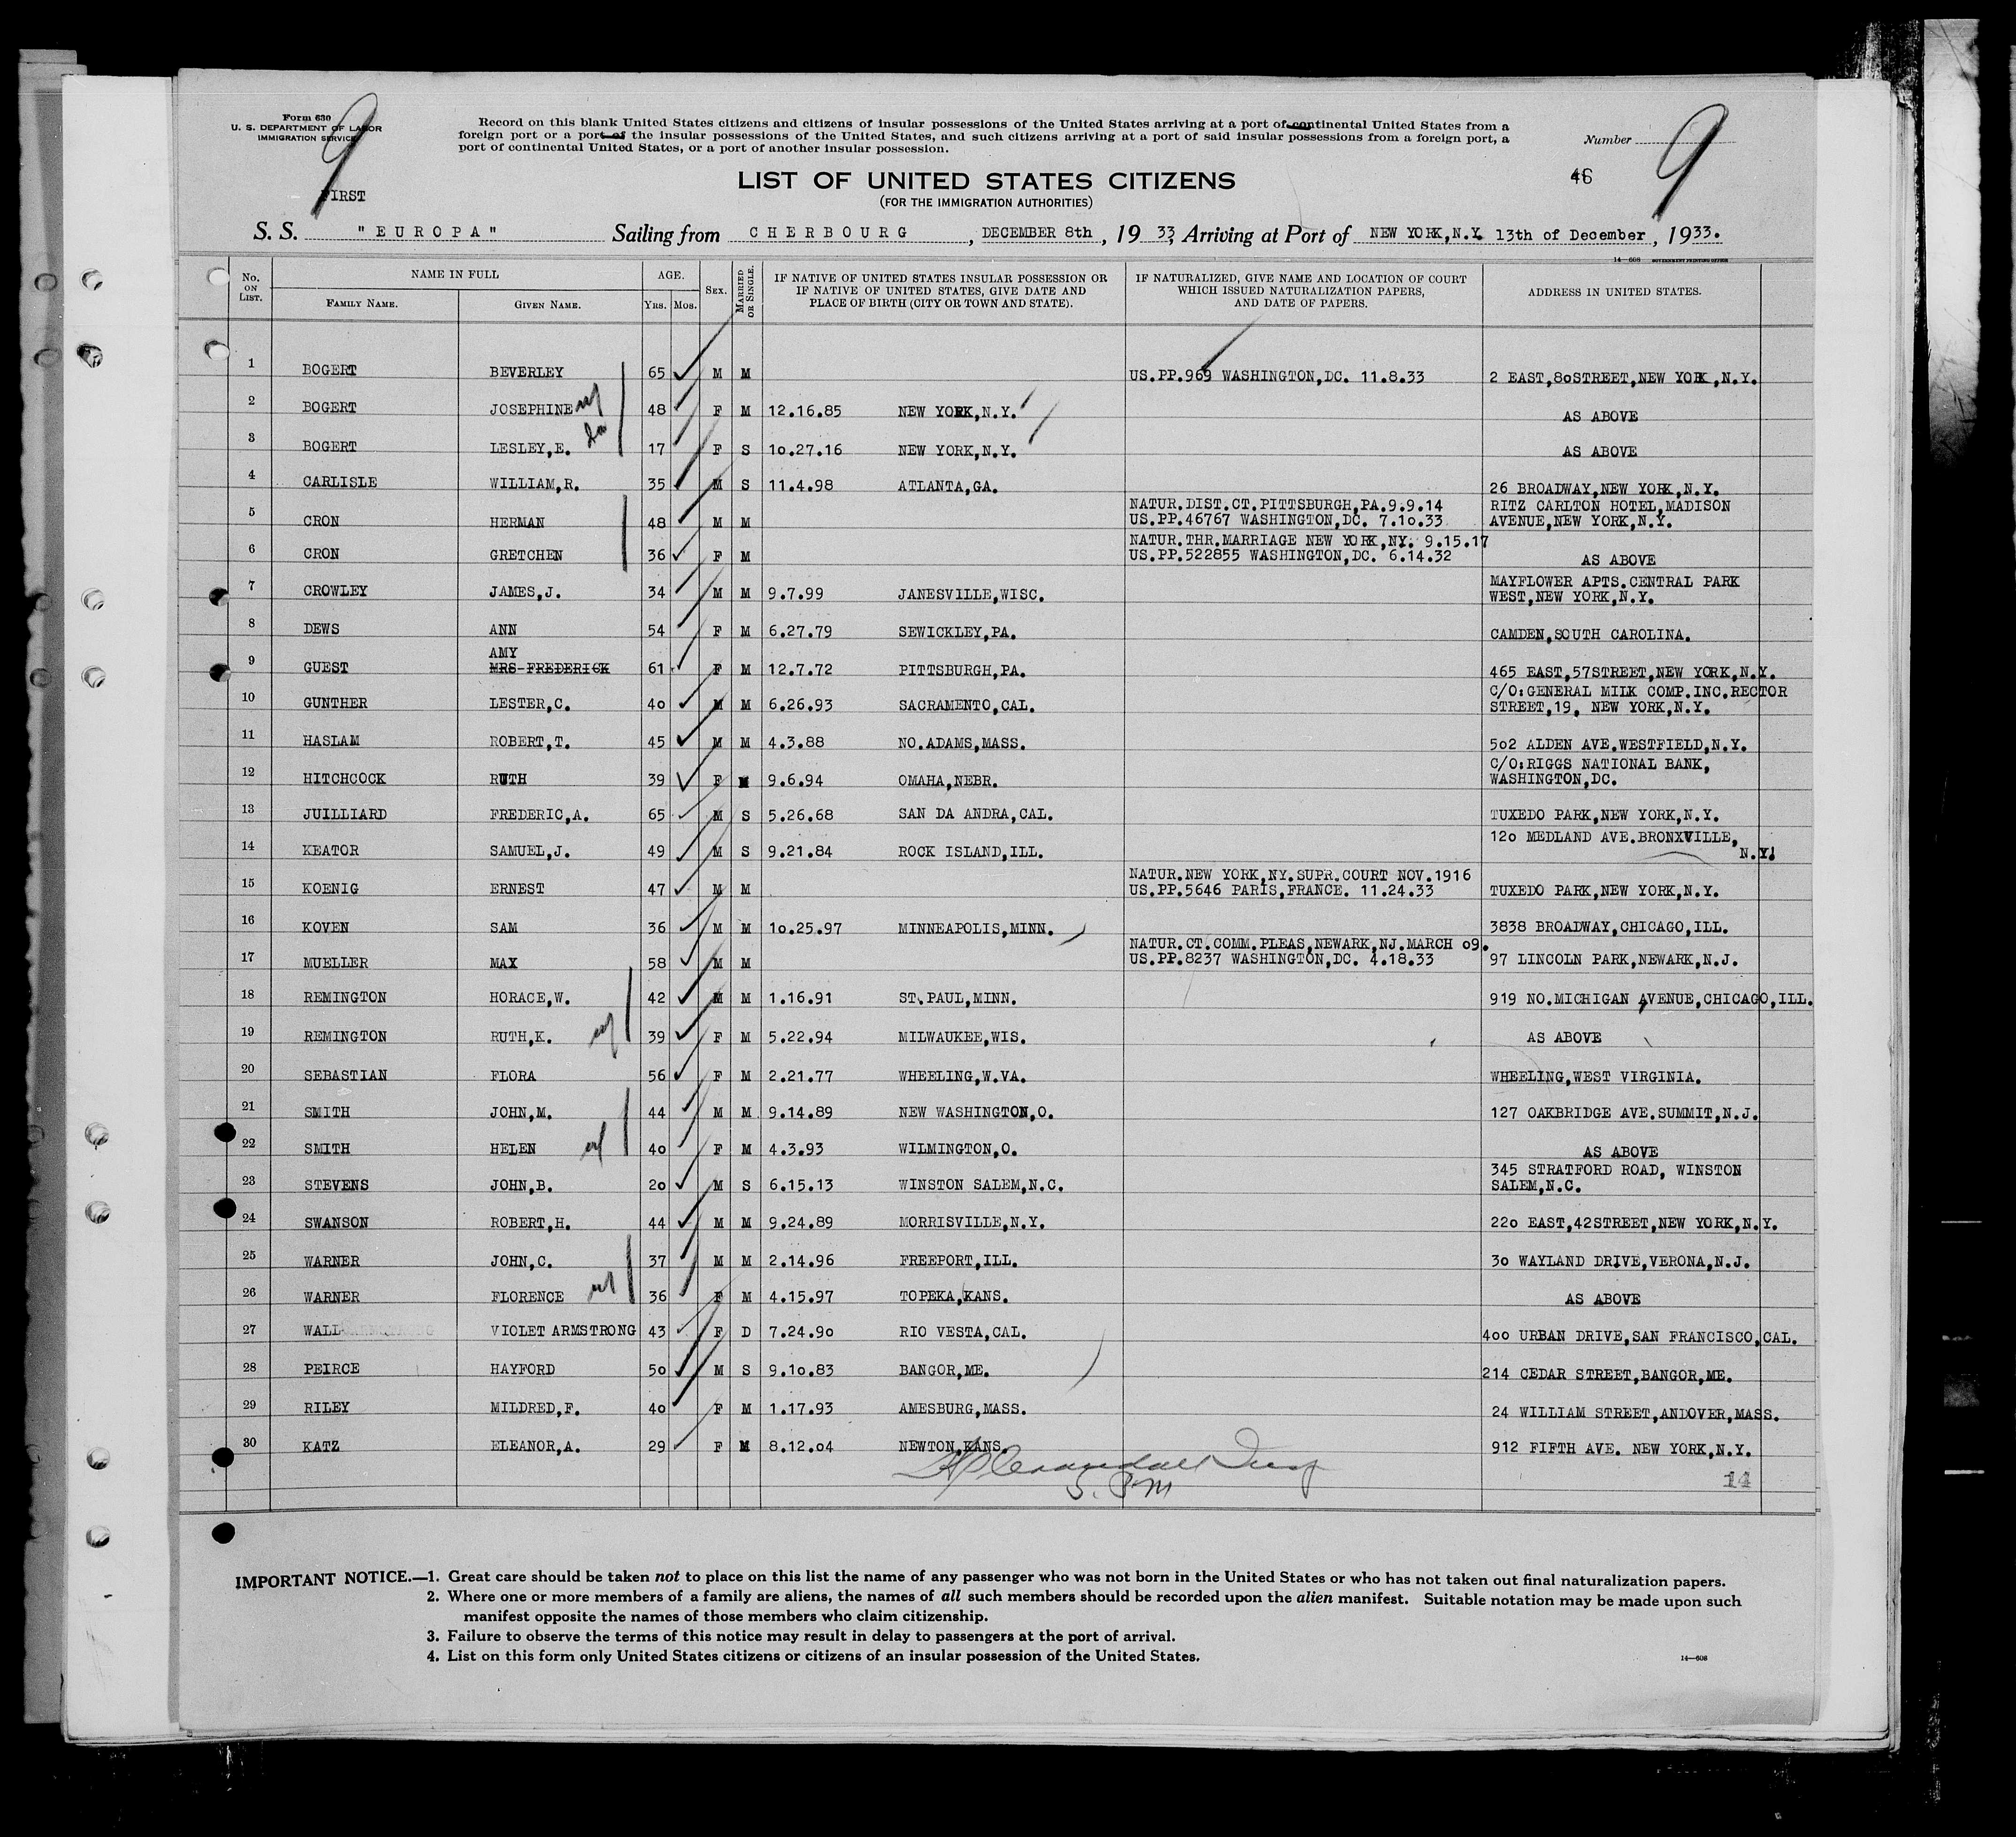 Form 630
U. S. DEPARTMENT OF LABOR
IMMIGRATION SERVICE
9
FIRST
Record on this blank United States citizens and citizens of insular possessions of the United States arriving at a port of continental United States from a
foreign port or a port of the insular possessions of the United States, and such citizens arriving at a port of said insular possessions from a foreign port, a
port of continental United States, or a port of another insular possession.
Number
9
46
LIST OF UNITED STATES CITIZENS
(FOR THE IMMIGRATION AUTHORITIES)
S. S. "EUROPA" Sailing from CHERBOURG, DECEMBER 8th, 1933, Arriving at Port of NEW YORK,N.Y. 13th of December, 1933.
14—608 GOVERNMENT PRINTING OFFICE
No. ON LIST. NAME IN FULL FAMILY NAME. GIVEN NAME. AGE. YRS. MOS. SEX. MARRIED OR SINGLE. IF NATIVE OF UNITED STATES INSULAR POSSESSION OR IF NATIVE OF UNITED STATES, GIVE DATE AND PLACE OF BIRTH (CITY OR TOWN AND STATE). IF NATURALIZED, GIVE NAME AND LOCATION OF COURT WHICH ISSUED NATURALIZATION PAPERS, AND DATE OF PAPERS. ADDRESS IN UNITED STATES.
1 BOGERT BEVERLEY 65 M M US.PP.969 WASHINGTON,DC. 11.8.33 2 EAST,80STREET,NEW YORK,N.Y.
2 BOGERT JOSEPHINE wf 48 F M 12.16.85 NEW YORK,N.Y. AS ABOVE
3 BOGERT LESLEY,E. da 17 F S 10.27.16 NEW YORK,N.Y. AS ABOVE
4 CARLISLE WILLIAM,R. 35 M S 11.4.98 ATLANTA,GA. 26 BROADWAY,NEW YORK,N.Y.
5 CRON HERMAN 48 M M NATUR.DIST.CT.PITTSBURGH,PA.9.9.14 US.PP.46767 WASHINGTON,DC. 7.10.33 RITZ CARLTON HOTEL,MADISON AVENUE,NEW YORK,N.Y.
6 CRON GRETCHEN 36 F M NATUR.THR.MARRIAGE NEW YORK,NY. 9.15.17 US.PP.522855 WASHINGTON,DC. 6.14.32 AS ABOVE
7 CROWLEY JAMES,J. 34 M M 9.7.99 JANESVILLE,WISC. MAYFLOWER APTS.CENTRAL PARK WEST,NEW YORK,N.Y.
8 DEWS ANN 54 F M 6.27.79 SEWICKLEY,PA. CAMDEN,SOUTH CAROLINA.
9 GUEST AMY MRS-FREDERICK 61 F M 12.7.72 PITTSBURGH,PA. 465 EAST,57STREET,NEW YORK,N.Y.
10 GUNTHER LESTER,C. 40 M M 6.26.93 SACRAMENTO,CAL. C/O:GENERAL MILK COMP.INC.RECTOR STREET,19, NEW YORK,N.Y.
11 HASLAM ROBERT,T. 45 M M 4.3.88 NO.ADAMS,MASS. 502 ALDEN AVE.WESTFIELD,N.Y.
12 HITCHCOCK RUTH 39 F M 9.6.94 OMAHA,NEBR. C/O:RIGGS NATIONAL BANK, WASHINGTON,DC.
13 JUILLIARD FREDERIC,A. 65 M S 5.26.68 SAN DA ANDRA,CAL. TUXEDO PARK,NEW YORK,N.Y.
14 KEATOR SAMUEL,J. 49 M S 9.21.84 ROCK ISLAND,ILL. 120 MEDLAND AVE.BRONXVILLE, N.Y.
15 KOENIG ERNEST 47 M M NATUR.NEW YORK,NY.SUPR.COURT NOV.1916 US.PP.5646 PARIS,FRANCE. 11.24.33 TUXEDO PARK,NEW YORK,N.Y.
16 KOVEN SAM 36 M M 10.25.97 MINNEAPOLIS,MINN. 3838 BROADWAY,CHICAGO,ILL.
17 MUELLER MAX 58 M M NATUR.CT.COMM.PLEAS,NEWARK,NJ.MARCH 09. US.PP.8237 WASHINGTON,DC. 4.18.33 97 LINCOLN PARK,NEWARK,N.J.
18 REMINGTON HORACE,W. 42 M M 1.16.91 ST.PAUL,MINN. 919 NO.MICHIGAN AVENUE,CHICAGO,ILL.
19 REMINGTON RUTH,K. wf 39 F M 5.22.94 MILWAUKEE,WIS. AS ABOVE
20 SEBASTIAN FLORA 56 F M 2.21.77 WHEELING,W.VA. WHEELING,WEST VIRGINIA.
21 SMITH JOHN,M. 44 M M 9.14.89 NEW WASHINGTON,O. 127 OAKBRIDGE AVE.SUMMIT,N.J.
22 SMITH HELEN wf 40 F M 4.3.93 WILMINGTON,O. AS ABOVE
23 STEVENS JOHN,B. 20 M S 6.15.13 WINSTON SALEM,N.C. 345 STRATFORD ROAD, WINSTON SALEM,N.C.
24 SWANSON ROBERT,H. 44 M M 9.24.89 MORRISVILLE,N.Y. 220 EAST,42STREET,NEW YORK,N.Y.
25 WARNER JOHN,C. 37 M M 2.14.96 FREEPORT,ILL. 30 WAYLAND DRIVE,VERONA,N.J.
26 WARNER FLORENCE wf 36 F M 4.15.97 TOPEKA,KANS. AS ABOVE
27 WALL VIOLET ARMSTRONG 43 F D 7.24.90 RIO VESTA,CAL. 400 URBAN DRIVE,SAN FRANCISCO,CAL.
28 PEIRCE HAYFORD 50 M S 9.10.83 BANGOR,ME. 214 CEDAR STREET,BANGOR,ME.
29 RILEY MILDRED,F. 40 F M 1.17.93 AMESBURG,MASS. 24 WILLIAM STREET,ANDOVER,MASS.
30 KATZ ELEANOR,A. 29 F M 8.12.04 NEWTON,KANS. 912 FIFTH AVE. NEW YORK,N.Y.
14
IMPORTANT NOTICE.—1. Great care should be taken not to place on this list the name of any passenger who was not born in the United States or who has not taken out final naturalization papers.
2. Where one or more members of a family are aliens, the names of all such members should be recorded upon the alien manifest. Suitable notation may be made upon such
manifest opposite the names of those members who claim citizenship.
3. Failure to observe the terms of this notice may result in delay to passengers at the port of arrival.
4. List on this form only United States citizens or citizens of an insular possession of the United States.
14—608